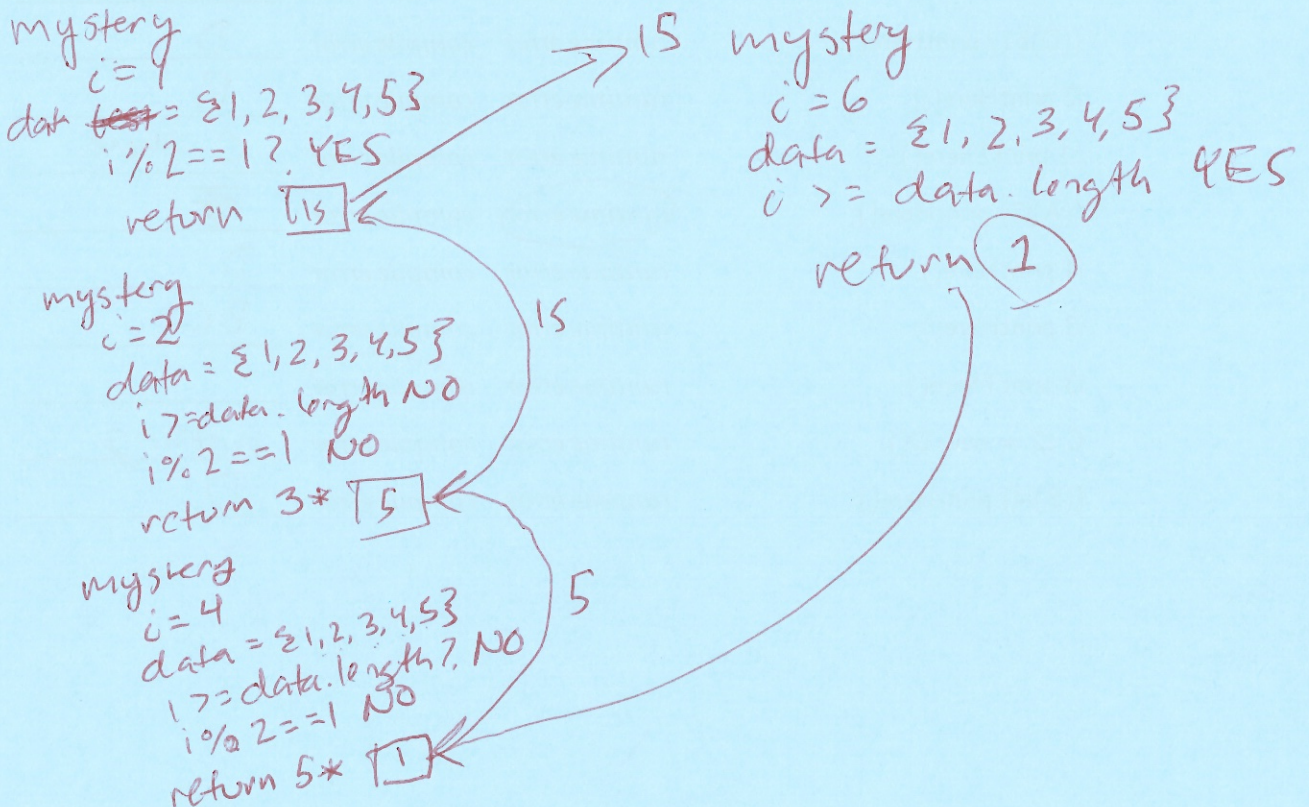 mystery
i = 1
data = {1, 2, 3, 4, 5}
i % 2 == 1 ? YES
return 15
15
mystery
i = 2
data = {1, 2, 3, 4, 5}
i >= data.length NO
i % 2 == 1 NO
return 3 * 5
15
mystery
i = 4
data = {1, 2, 3, 4, 5}
i >= data.length? NO
i % 2 == 1 NO
return 5 * 1
5
mystery
i = 6
data = {1, 2, 3, 4, 5}
i >= data.length YES
return 1